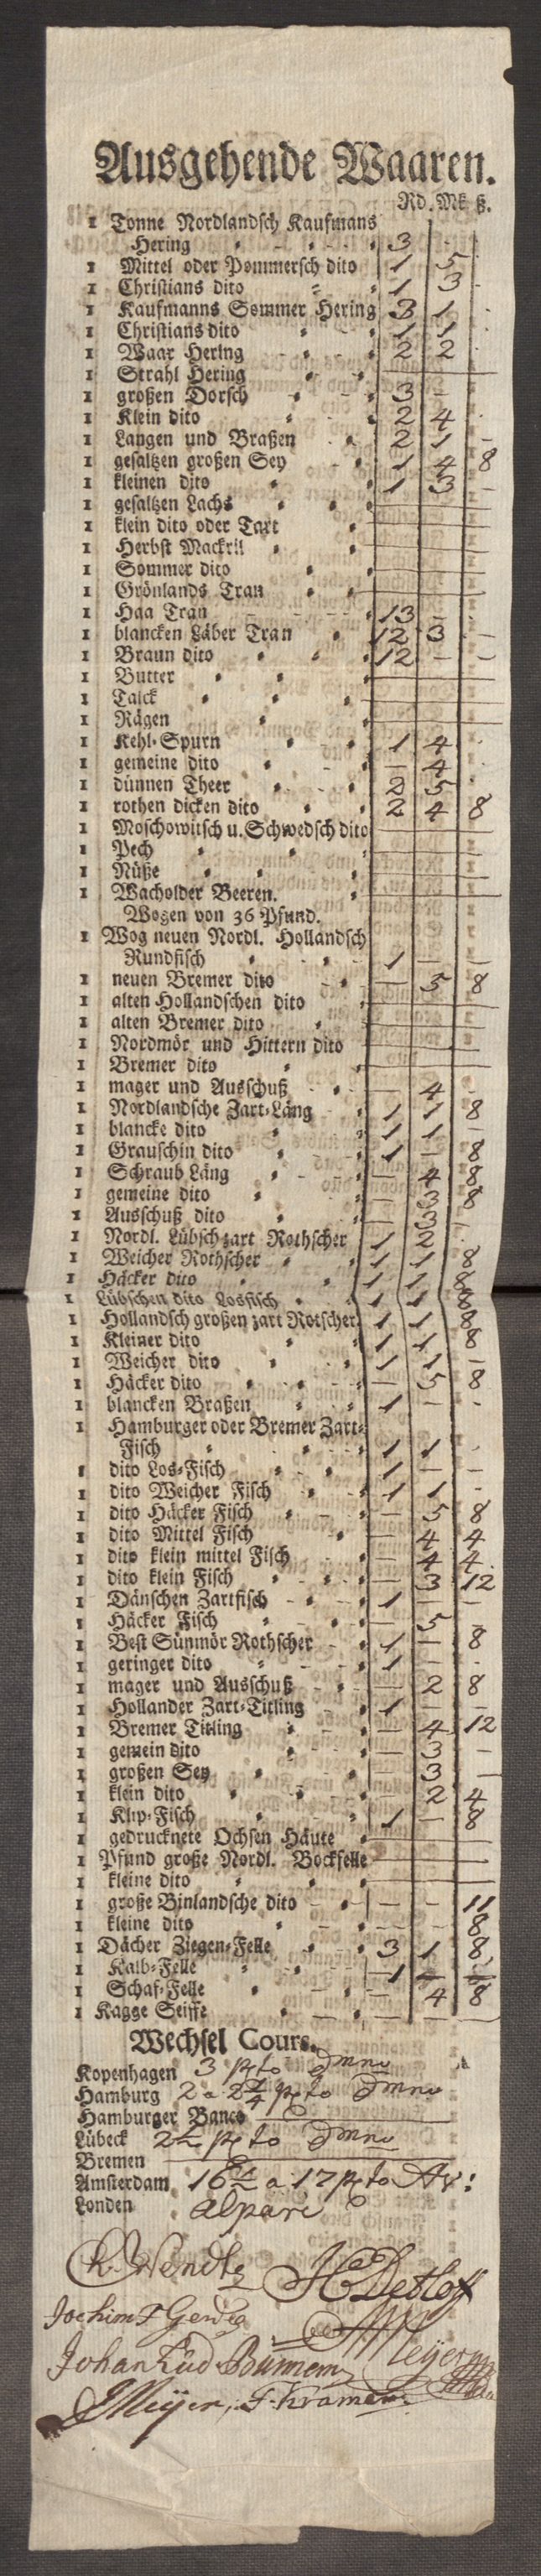 Ausgehende Waaren.
Rd. Mk ß.
1 Tonne Nordlandsch Kaufmans
Hering 3 - -
1 Mittel oder Pommersch dito 1 5
1 Christians dito 1 3 -
1 Kaufmanns Sommer Hering 3 1
1 Christians dito 1 1
1 Waar Hering 2 2
1 Strahl Hering
1 großen Dorsch 3 -
1 Klein dito 2 4
1 Langen und Braßen 2 1 -
1 gesaltzen großen Sey 1 4 8
1 kleinen dito 1 3
1 gesaltzen Lachs
1 klein dito oder Tart
1 Herbst Mackril
1 Sommer dito
1 Grönlands Tran
1 Haa Tran 13 -
1 blancken Läber Tran 12 3 -
1 Braun dito 12 - -
1 Butter
1 Talck
1 Rägen
1 Kehl-Spurn 1 4
1 gemeine dito - 4
1 dünnen Theer 2 5
1 rothen dicken dito 2 4 8
1 Moschowitsch u. Schwedsch dito
1 Pech
1 Nüße
1 Wacholder Beeren.
Wogen von 36 Pfund.
1 Wog neuen Nordl. Hollandsch
Rundfisch 1 - -
1 neuen Bremer dito - 5 8
1 alten Hollandschen dito
1 alten Bremer dito
1 Nordmör und Hittern dito
1 Bremer dito
1 mager und Ausschuß - 4 -
1 Nordlandsche Zart-Läng 1 1 8
1 blancke dito 1 1 -
1 Grauschin dito 1 - 8
1 Schraub Läng - 4 8
1 gemeine dito - 3 8
1 Ausschuß dito - 3 -
1 Nordl. Lübsch zart Rothscher 1 2
1 Weicher Rothscher 1 1 8
1 Häcker dito 1 1 8
1 Lübschen dito Losfisch 1 1 8
1 Hollandsch großen zart Rotscher 1 1 8
1 Kleiner dito 1 1 8
1 Weicher dito 1 1 -
1 Häcker dito - 5 8
1 blancken Braßen 1 - -
1 Hamburger oder Bremer Zart-
Fisch 1 1
1 dito Los-Fisch 1 - -
1 dito Weicher Fisch 1 1
1 dito Häcker Fisch - 5 8
1 dito Mittel Fisch - 4 4
1 dito klein mittel Fisch - 4 4
1 dito klein Fisch - 3 12
1 Dänschen Zartfisch 1 - -
1 Häcker Fisch - 5
1 Best Sünmör Rothscher 1 - 8
1 geringer dito 1 -
1 mager und Ausschuß - 2 8
1 Hollander Zart-Titling 1 - -
1 Bremer Titling - 4 12
1 gemein dito - 3 -
1 großen Sey - 3 -
1 klein dito - 2 4
1 Klip-Fisch 1 - 8
1 gedrucknete Ochsen Häute
1 Pfund große Nordl. Bockfelle
1 kleine dito
1 große Binlandsche dito - - 11
1 kleine dito - - 8
1 Dächer Ziegen-Felle 3 1 8
1 Kalb-Felle 1
1 Schaf-Felle - 4 8
1 Kagge Seiffe - - -
Wechsel Cours.
Kopenhagen 3 pto
Hamburg 2 a 2¼ pto
Hamburger Banco
Lübeck 2½ pto
Bremen
Amsterdam a 17 pto
Londen alpari
Wendts HDetloff
Jochim F Gerdes
Johan Lüd Meÿer
JMeÿer, F. Kramer